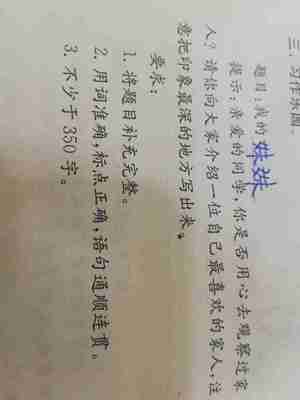 三、习作乐园。
题目:我的妹妹
提示:亲爱的同学,你是否用心去观察过家
人?请你向大家介绍一位自己最喜欢的家人,注
意把印象最深的地方写出来。
要求:
1. 将题目补充完整。
2. 用词准确,标点正确,语句通顺连贯。
3. 不少于350字。